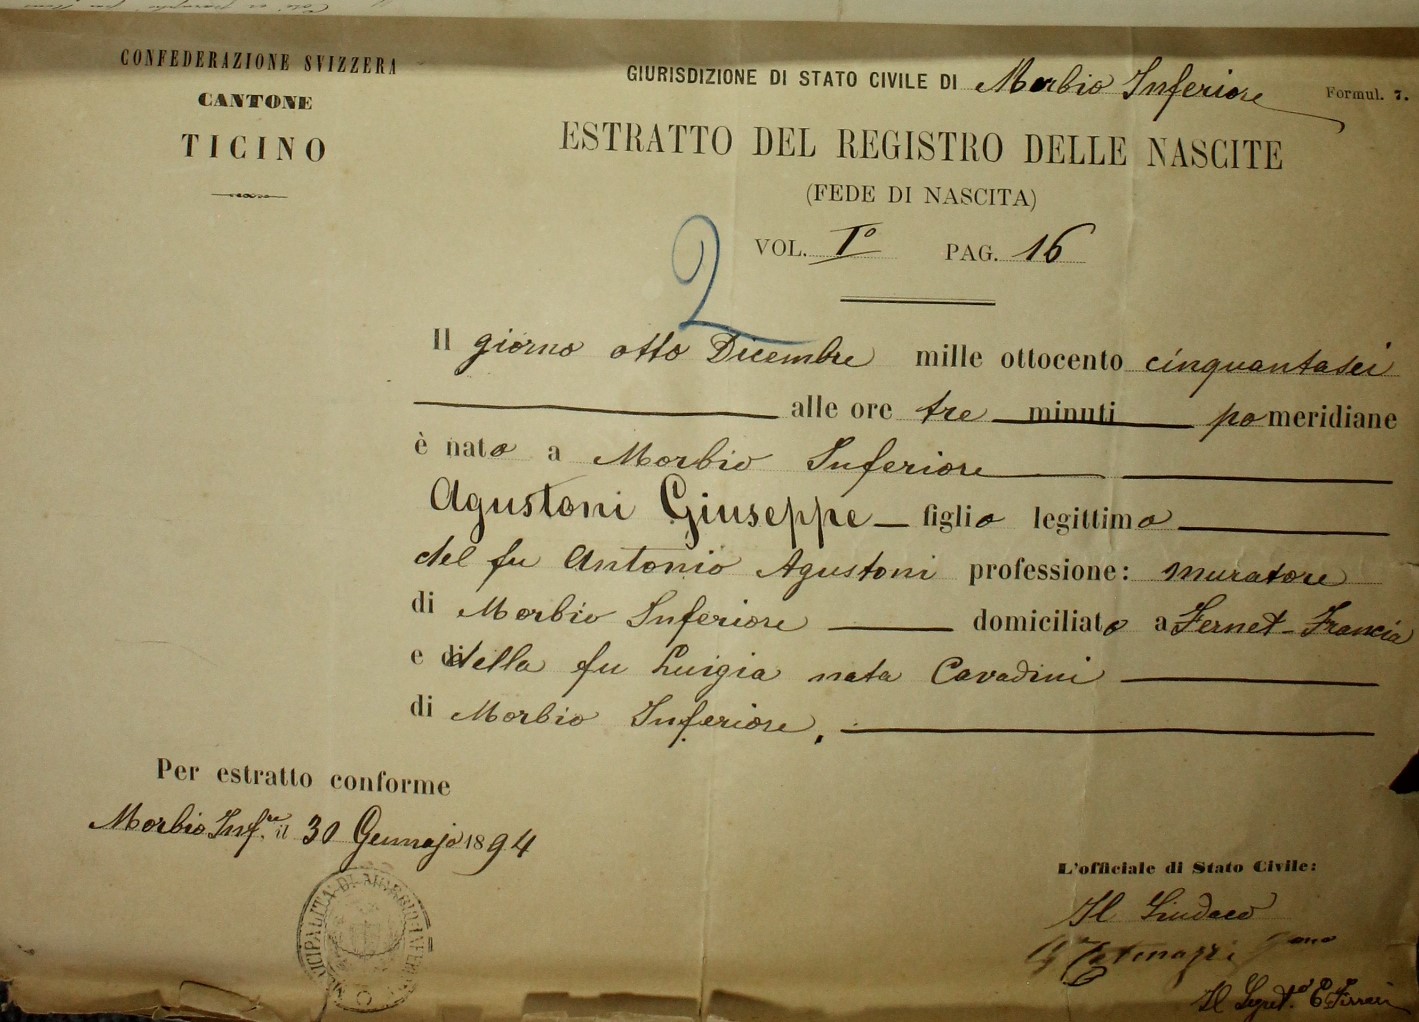 CONFEDERAZIONE SVIZZERA
CANTONE
TICINO
GIURISDIZIONE DI STATO CIVILE DI Morbio Inferiore
Formul. 7.
ESTRATTO DEL REGISTRO DELLE NASCITE
(FEDE DI NASCITA)
2
VOL. Iº PAG. 16
Il giorno otto Dicembre mille ottocento cinquantasei
alle ore tre minuti pomeridiane
è nato a Morbio Inferiore
Agustoni Giuseppe figlio legittimo
del fu Antonio Agustoni professione: muratore
di Morbio Inferiore domiciliato a Fernet-Francia
e della fu Luigia nata Cavadini
di Morbio Inferiore.
Per estratto conforme
Morbio Inf.re il 30 Gennajo 1894
MUNICIPALITÀ DI MORBIO INFERIORE
L'officiale di Stato Civile:
Il Sindaco
Il Segret.rio E. Ferrari